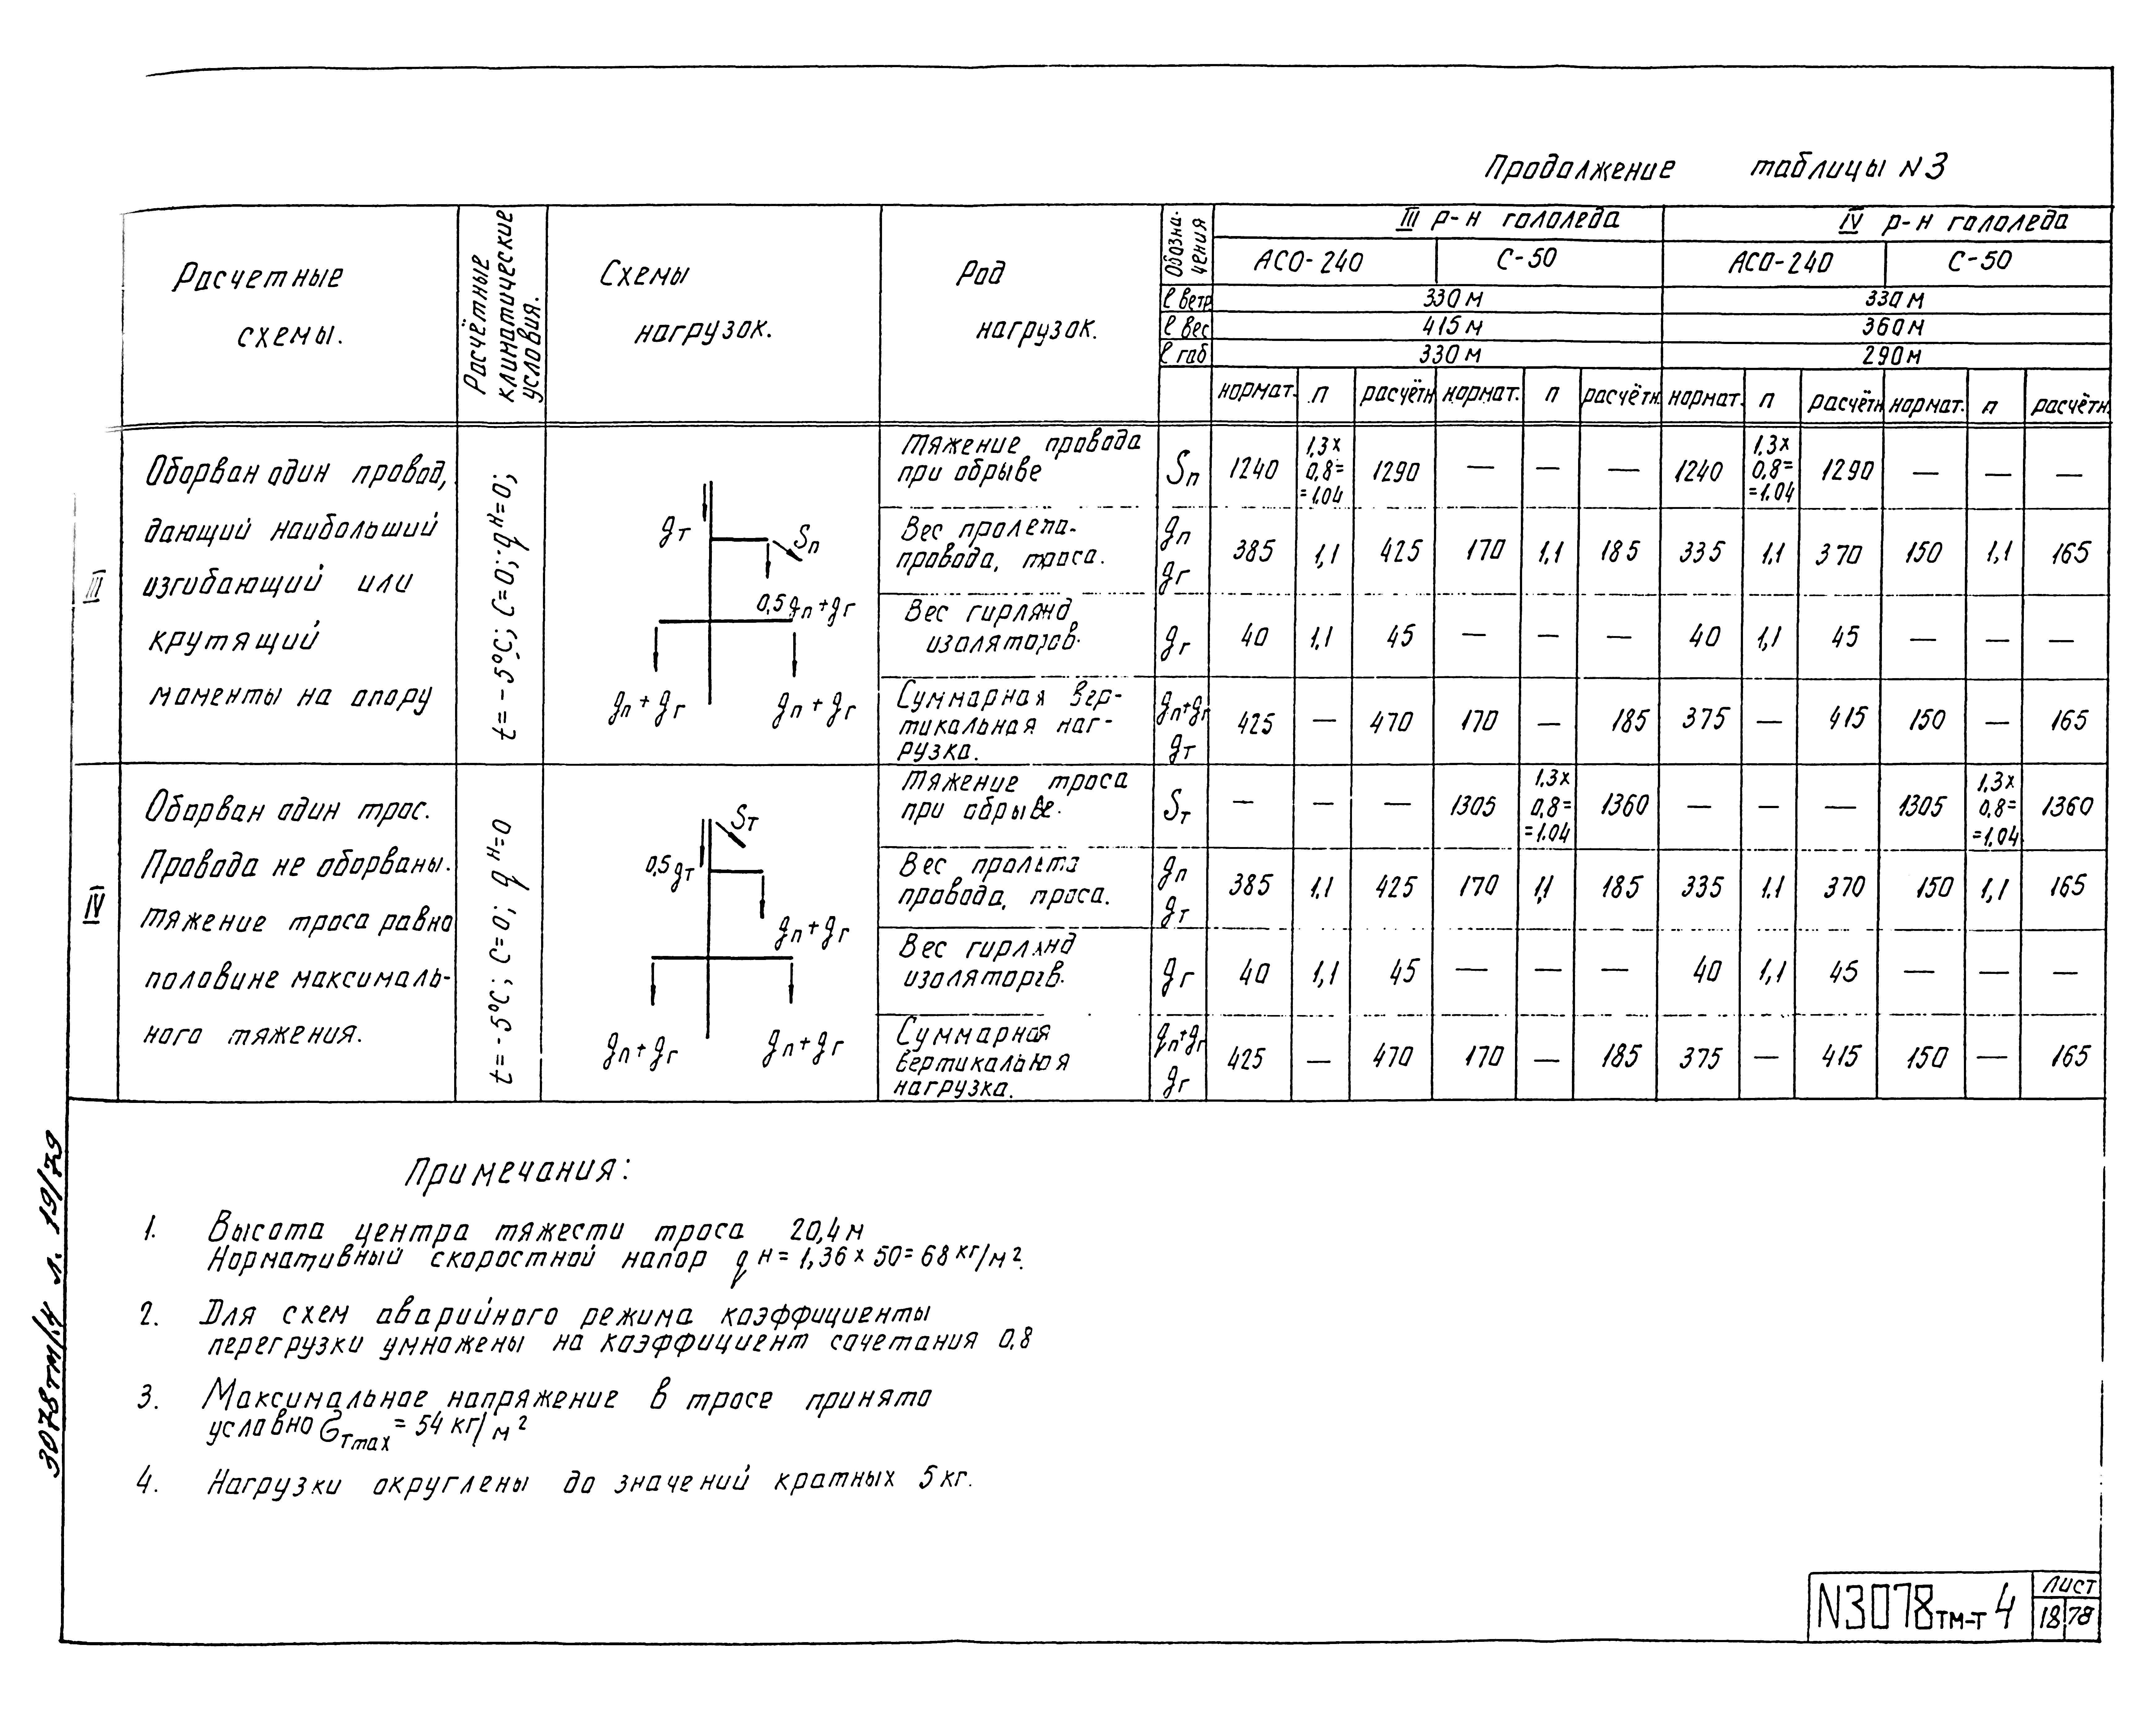 Продолжение таблицы N3
Расчетные схемы.
Расчётные климатические условия.
Схемы нагрузок.
Род нагрузок.
Обозначения
III р-н гололеда
IV р-н гололеда
АСО-240 С-50 АСО-240 С-50
ℓ ветр 330м 330м
ℓ вес 415м 360м
ℓ габ 330м 290м
нормат. п расчётн нормат. п расчётн. нормат. п расчётн нормат. п расчётн.
III
Оборван один провод,
дающий наибольший
изгибающий или
крутящий
моменты на опору
t = -5°C; C=0; qᴴ=0;
gт
Sп
0,5gп+gг
gп+gг gп+gг
Тяжение провода
при обрыве
Sп 1240 1,3х0,8==1.04 1290 — — — 1240 1,3х0,8==1.04 1290 — — —
Вес пролета-
провода, троса.
gп
gг
385 1,1 425 170 1,1 185 335 1,1 370 150 1,1 165
Вес гирлянд
изоляторов.
gг 40 1,1 45 — — — 40 1,1 45 — — —
Суммарная вер-
тикальная наг-
рузка.
gп+gг
gт
425 — 470 170 — 185 375 — 415 150 — 165
IV
Оборван один трос.
Провода не оборваны.
Тяжение троса равно
половине максималь-
ного тяжения.
t = -5°C; C=0; qᴴ=0
Sт
0,5gт
gп+gг
gп+gг gп+gг
Тяжение троса
при обрыве.
Sт — — — 1305 1.3х0,8==1.04 1360 — — — 1305 1.3х0,8==1.04 1360
Вес пролета
провода, троса.
gп
gт
385 1.1 425 170 1,1 185 335 1.1 370 150 1,1 165
Вес гирлянд
изоляторов.
gг 40 1,1 45 — — — 40 1,1 45 — — —
Суммарная
вертикальная
нагрузка.
gп+gг
gг
425 — 470 170 — 185 375 — 415 150 — 165
Примечания:
1. Высота центра тяжести троса 20,4м
Нормативный скоростной напор qᴴ=1,36х50=68кг/м².
2. Для схем аварийного режима коэффициенты
перегрузки умножены на коэффициент сочетания 0,8
3. Максимальное напряжение в тросе принято
условно σтmax=54кг/м²
4. Нагрузки округлены до значений кратных 5кг.
3078тм/14 л. 19/79
N3078тм-т4
Лист
18 78